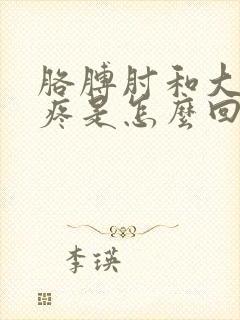 胳膊肘和大
疼是怎麼回
李瑛